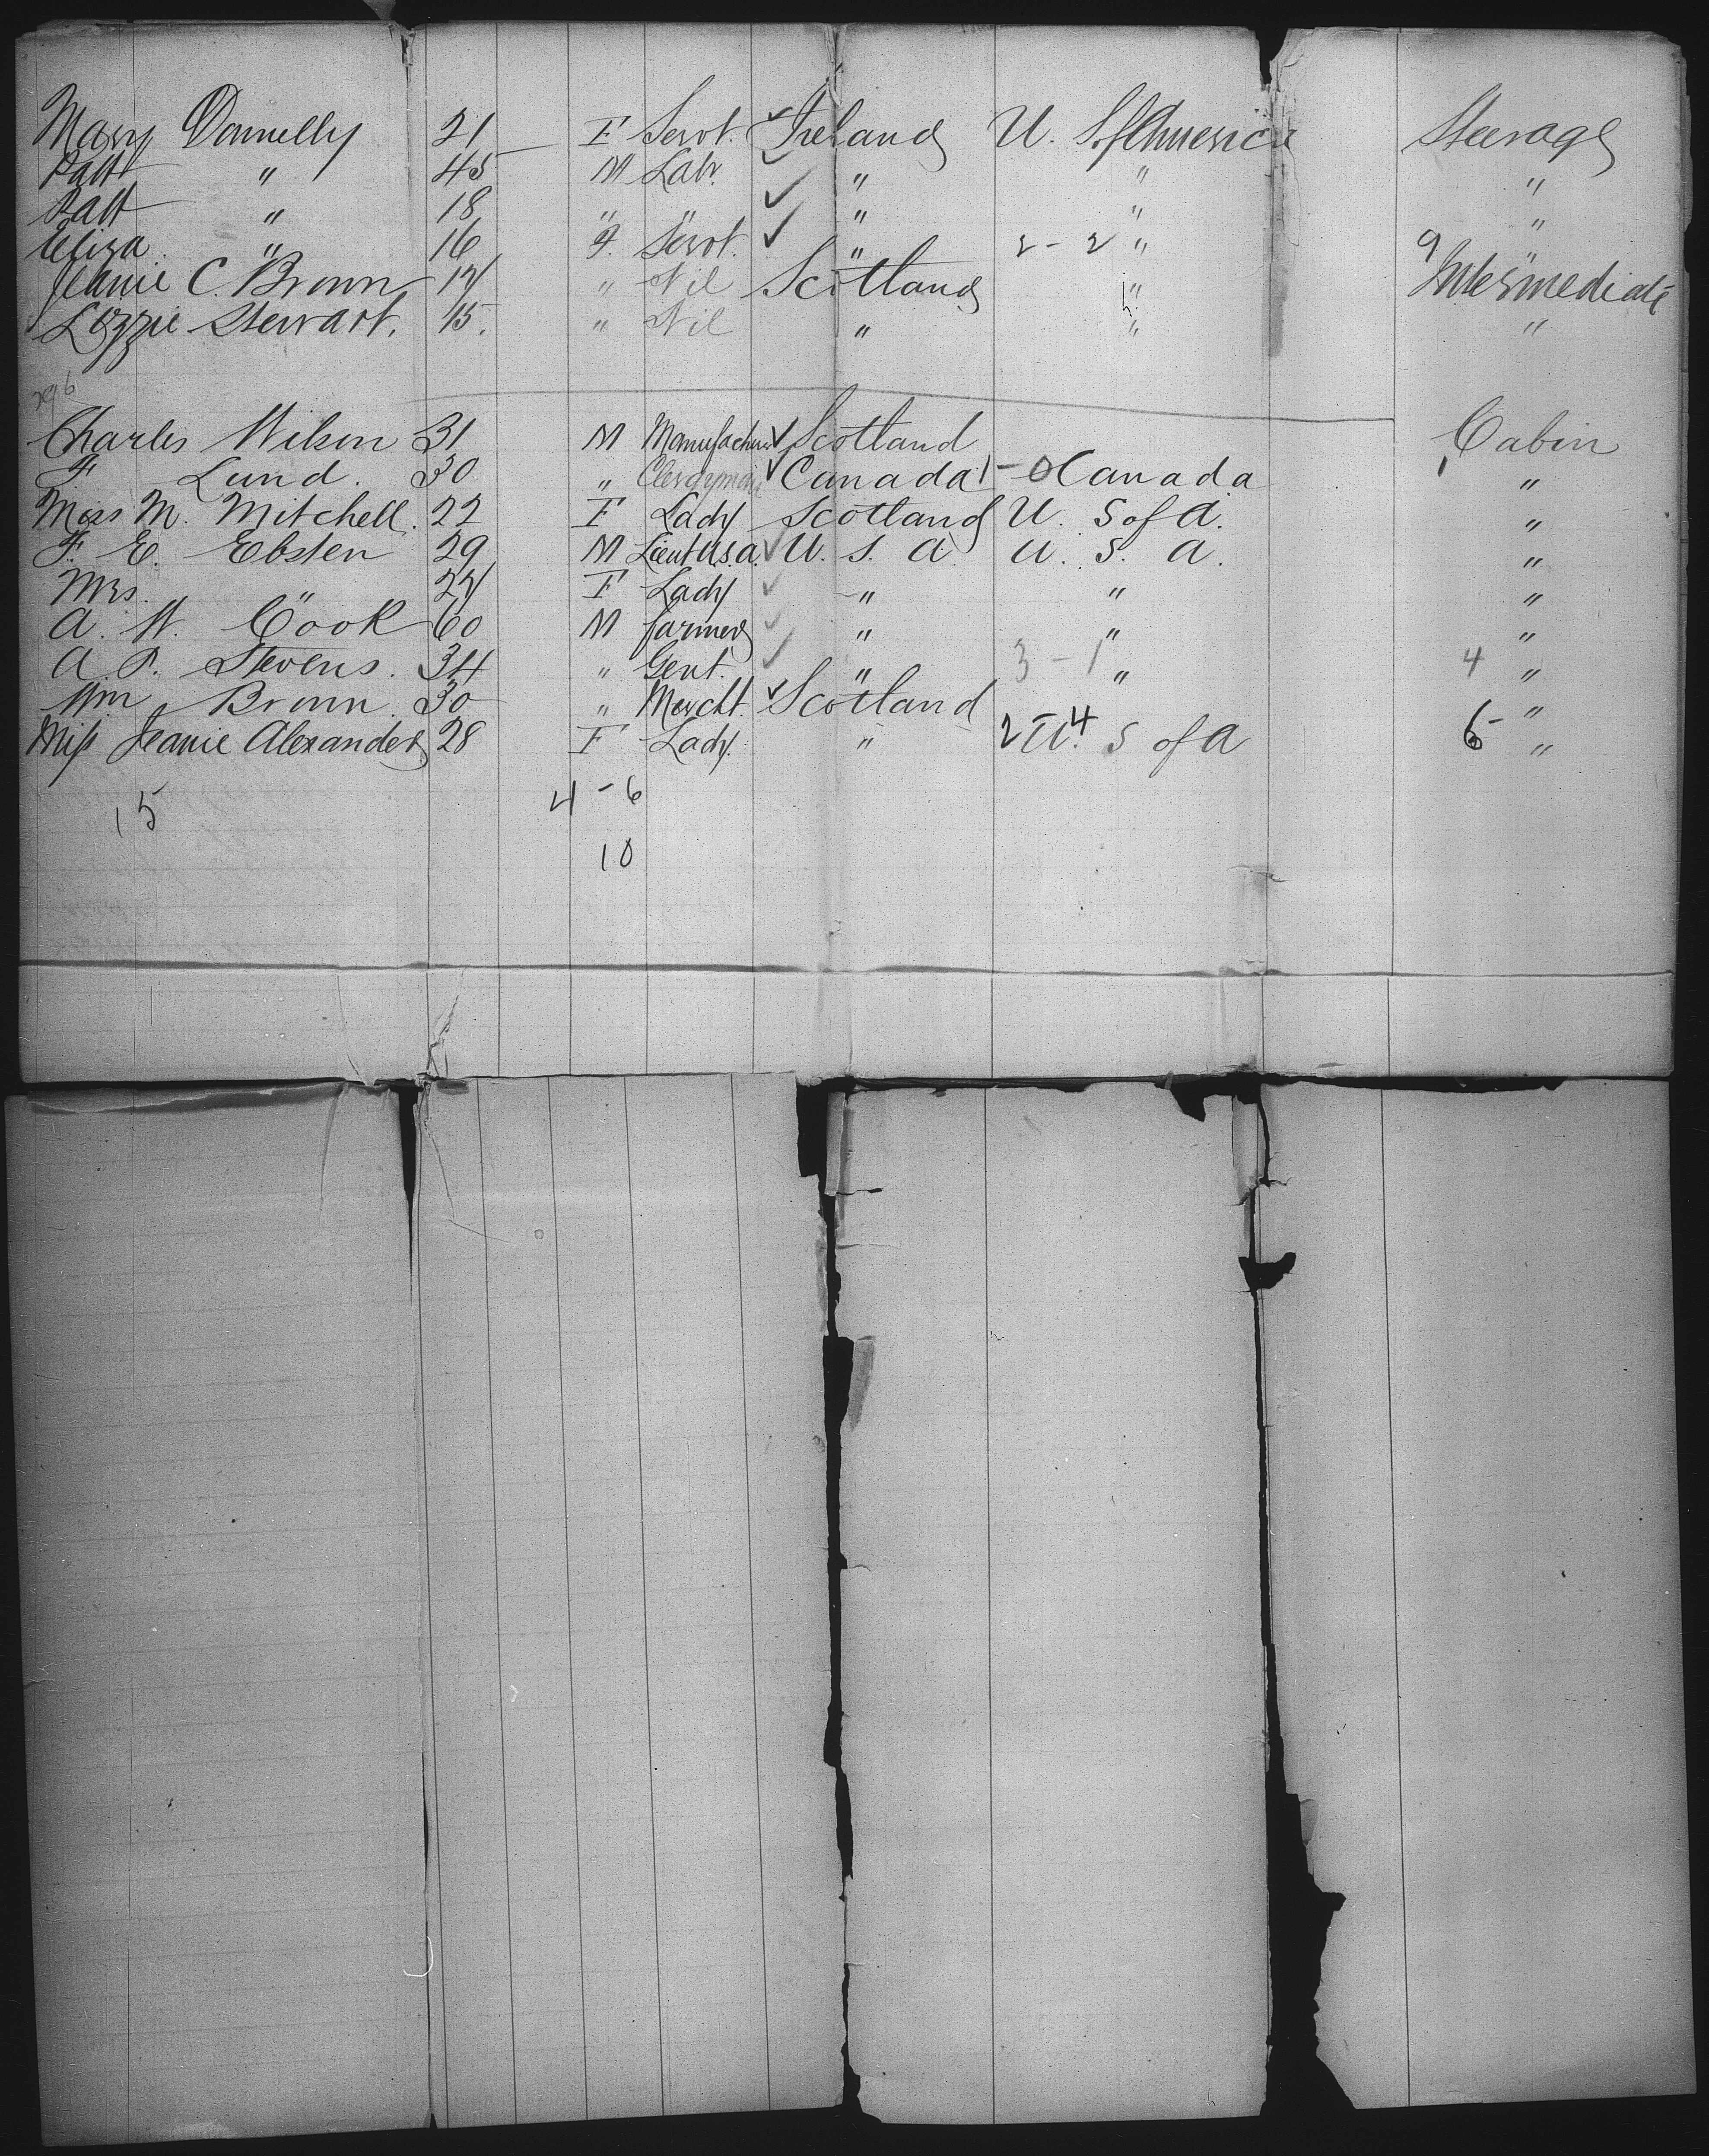 Mary Donnelly 21 F Servt. Ireland U. S. of America Steerage
Patt " 45 M Labr. " " "
Patt " 18 " " " " "
Eliza " 16 F. Servt. " 2 - 2 " 9 "
Jeanie C. Brown 17 " Nil Scotland " Intermediate
Lizzie Stewart. 15. " Nil " " "
296
Charles Wilson 31 M Manufacturer Scotland Cabin
F Lund. 30 " Clergyman Canada 1 - 0 Canada "
Miss M. Mitchell. 22 F Lady Scotland U. S of A. "
F. E. Ebsten 29 M Lieut U.S.A. U. S. A U. S. A. "
Mrs. " 24 F Lady " " "
A. W. Cook 60 M farmer " " "
A. P. Stevens. 34 " Gent. " 3 - 1 " 4 "
Wm Brown 30 " Mercht. Scotland "
Miss Jeanie Alexander 28 F Lady. " 2 - 4 U. S of A 6 - "
15 4 - 6
10